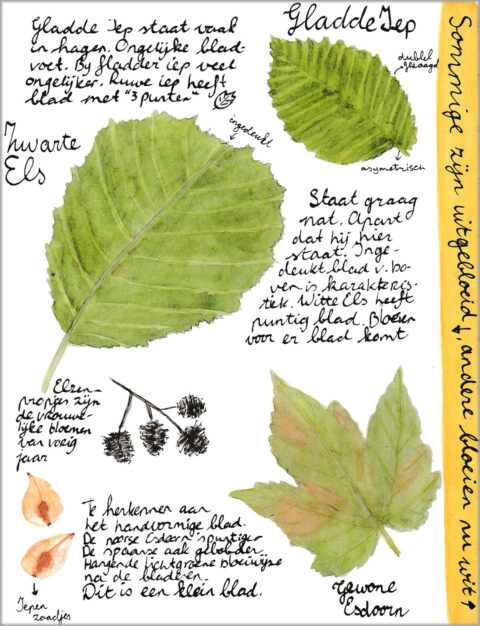 Gladde Iep staat vaak
in hagen. Ongelijke blad-
voet. By fladder iep veel
ongelijker. Ruwe iep heeft
blad met "3 punten"
Gladde Iep
dubbel
gezaagd
asymetrisch
Zwarte
Els
ingedeukt
Staat graag
nat. Apart
dat hij hier
staat. Inge-
deukt blad v. bo-
ven is karakteris-
tiek. Witte Els heeft
puntig blad. Bloeien
voor er blad komt
Elzen-
propjes zijn
de vrouwe-
lijke bloemen
van vorig
jaar
Te herkennen aan
het handvormige blad.
De noorse Esdoorn spuntiger
De spaanse aak gelobder.
Hangende lichtgroene bloeiwijze
na de bladeren.
Dit is een klein blad.
Iepen
zaadjes
Gewone
Esdoorn
Sommige zijn uitgebloeid ↓, andere bloeien nu wit ↑